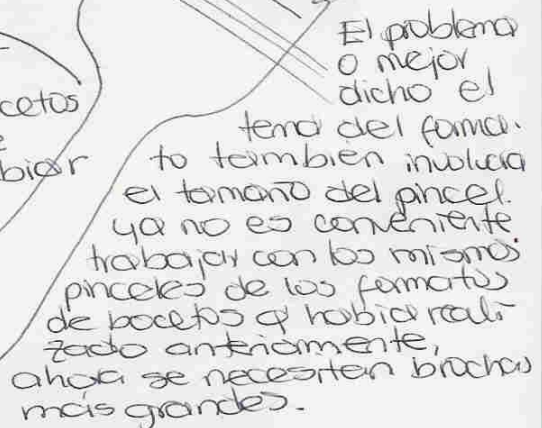 El problema
o mejor
dicho el
tema del forma.
to también involucra
el tamaño del pincel.
ya no es conveniente
trabajar con los mismos
pinceles de los formatos
de bocetos q' habia reali
zado anteriormente,
ahora se necesitan brochas
más grandes.
cetos
biar